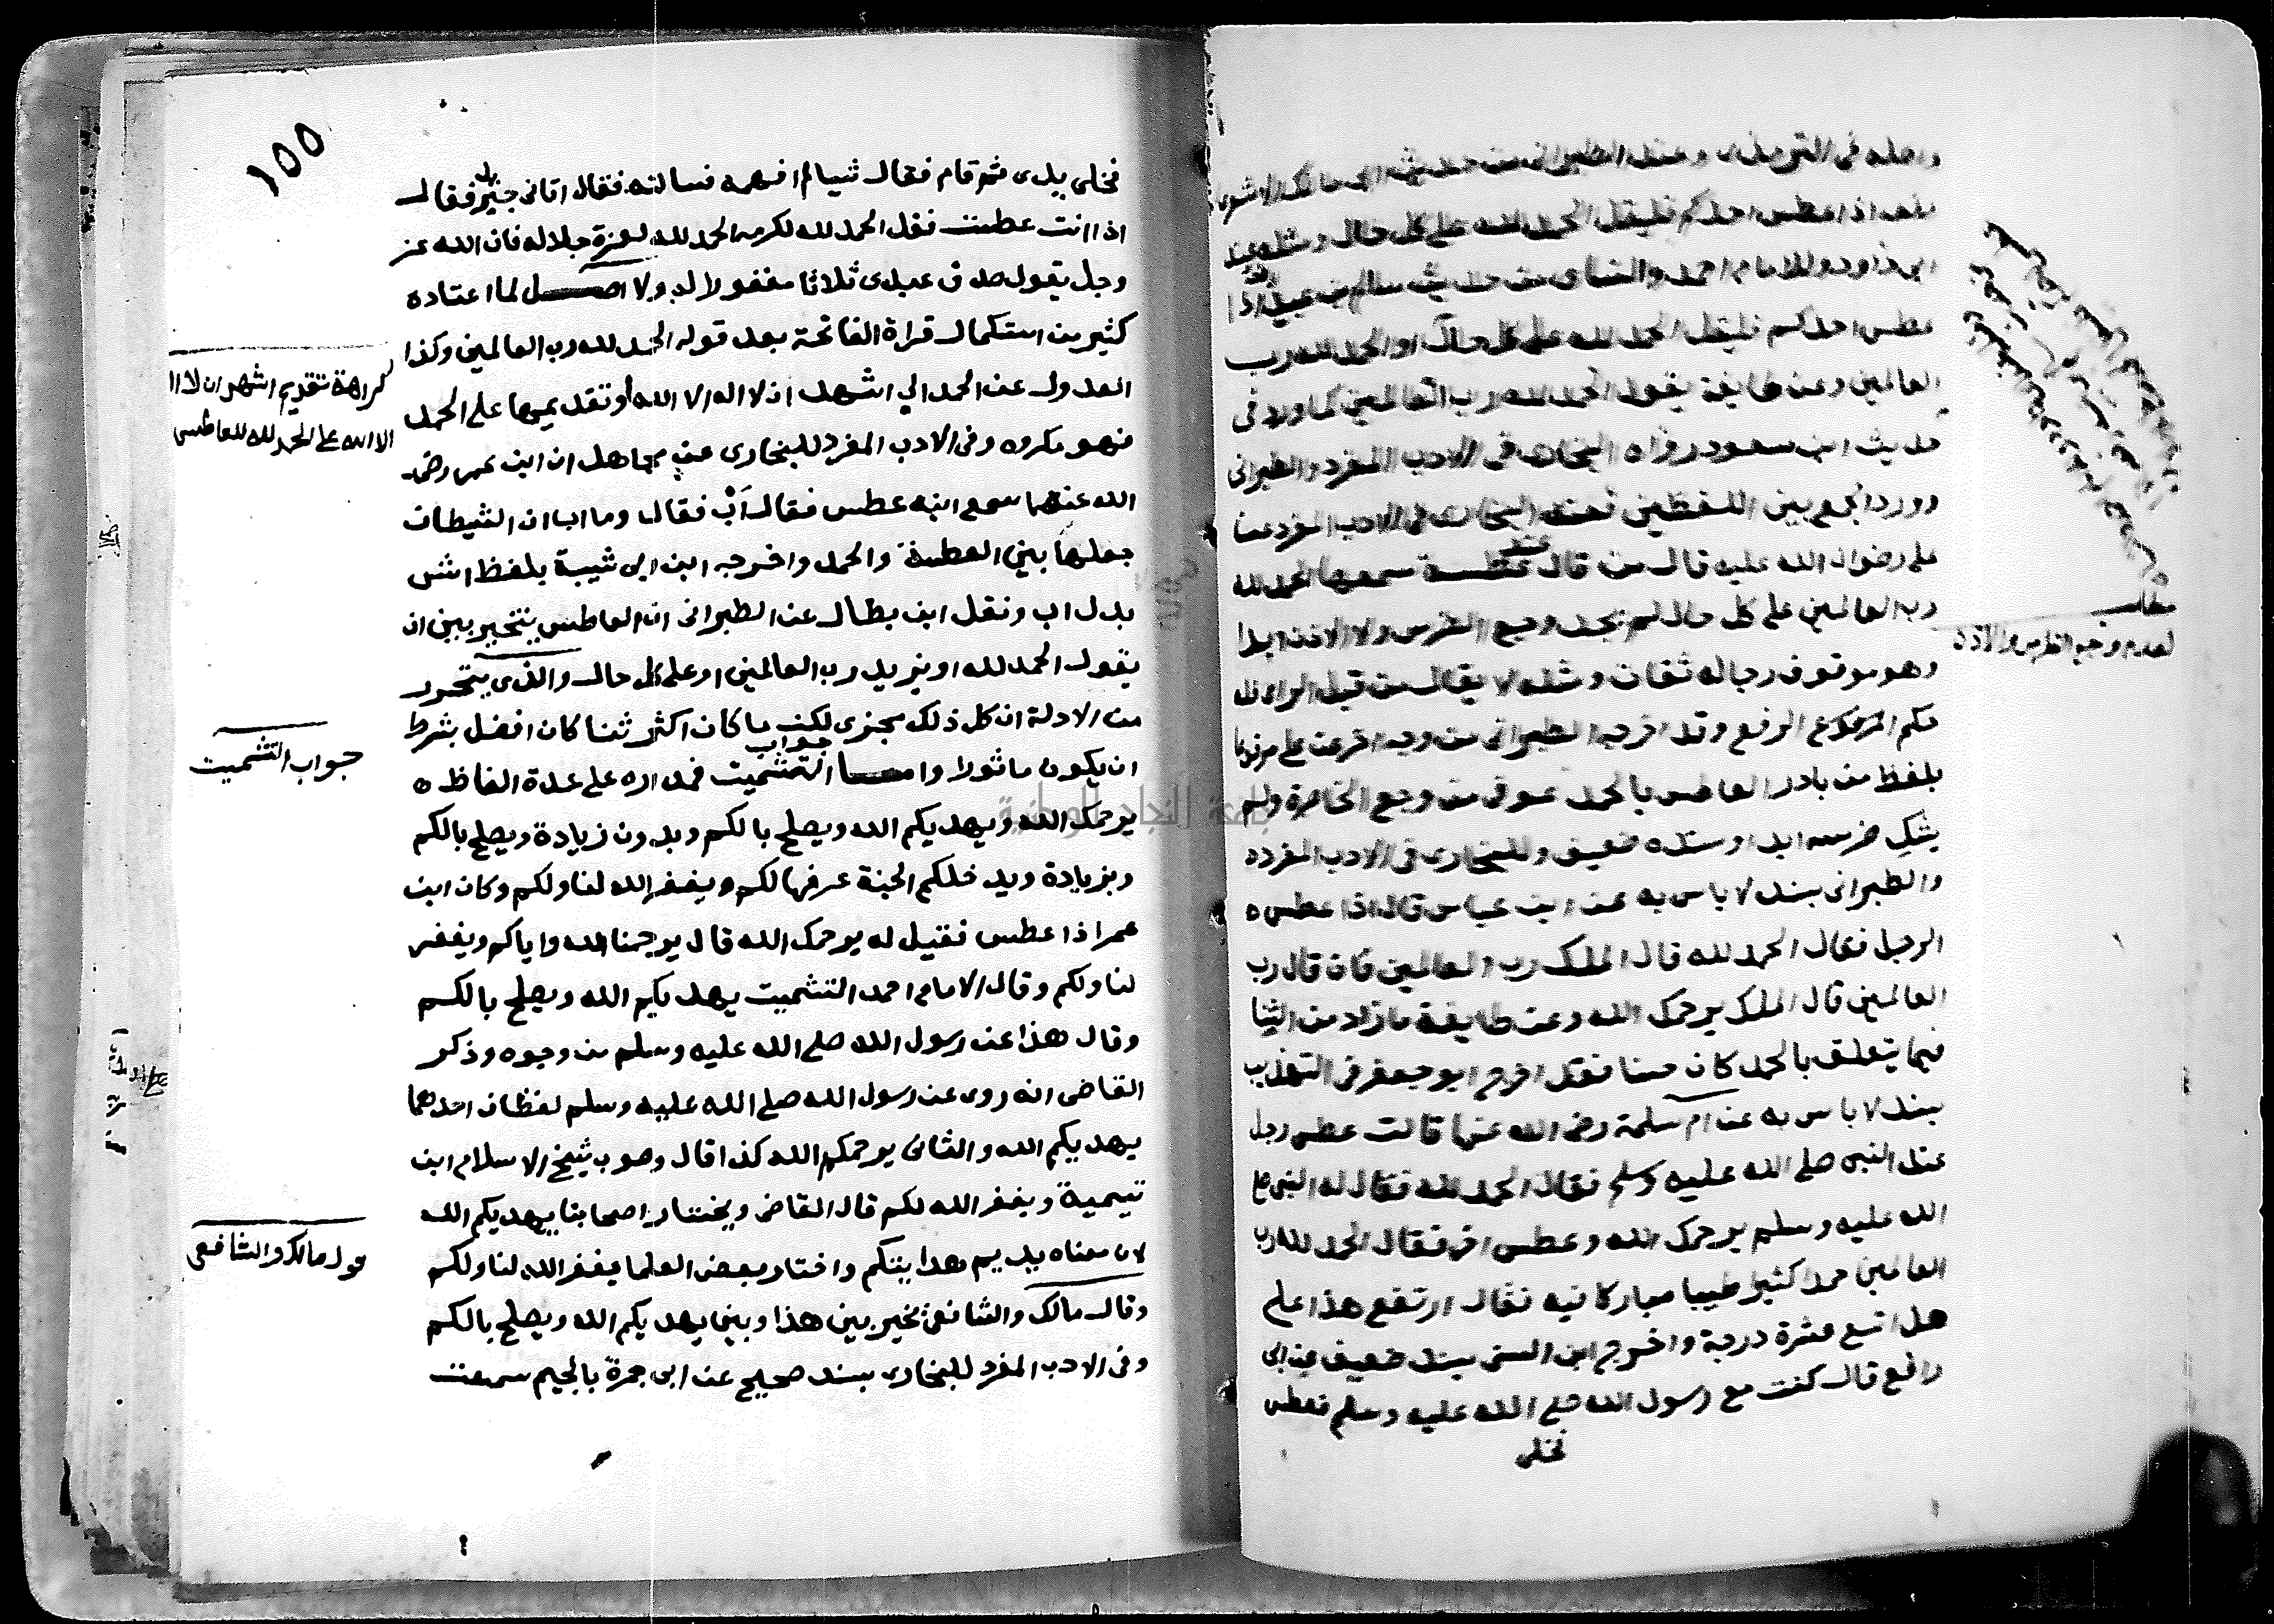 واصله في الترمذى وعند الطبرانى من حديث ابى مالك الاشعرى
اذا عطس احدكم فليقل الحمد لله على كل حال ومثله عند
ابى داود وللامام احمد والنساى من حديث سالم بن عبيد اذا
عطس احدكم فليقل الحمد لله على كل حال او الحمد لله رب
العالمين وعن طايفة يقول الحمد لله رب العالمين كما ورد فى
حديث ابن مسعود رواه البخارى فى الادب المفرد والطبرانى
وورد الجمع بين اللفظين فعند البخارى فى الادب المفرد عن
على رضوان الله عليه قال من قال عند عطسة سمعها الحمد لله
رب العالمين على كل حال لم يجد وجع الضرس ولا الاذن ابدا
وهو موقوف رجاله ثقات ومثله لا يقال من قبل الراى فله
حكم الرفع وقد اخرجه الطبرانى من وجه اخر عن على مرفوعا
بلفظ من بادر العاطس بالحمد عوفى من وجع الخاصرة ولم
يشك ضرسه ابدا وسنده ضعيف وللبخارى فى الادب المفرد
والطبرانى بسند لا باس به عن ابن عباس قال اذا عطس
الرجل فقال الحمد لله قال الملك رب العالمين فان قال رب
العالمين قال الملك يرحمك الله وعن طايفة ما زاد من الثنا
فيما يتعلق بالحمد كان حسنا فقد اخرج ابو جعفر فى التهذيب
بسند لا باس به عن ام سلمة رضى الله عنها قالت عطس رجل
عند النبى صلى الله عليه وسلم فقال الحمد لله فقال له النبى صلى
الله عليه وسلم يرحمك الله وعطس اخر فقال الحمد لله رب
العالمين حمدا كثيرا طيبا مباركا فيه فقال ارتفع هذا على
هذا تسع عشرة درجة واخرج ابن السنى بسند ضعيف عن ابى
رافع قال كنت مع رسول الله صلى الله عليه وسلم فعطس
فخلى
مطلب
لعدم وجع الضرس والاذن
١٥٥
فخلى يدى ثم قام فقال شيا لم افهمه فسالته فقال اتانى جبريل فقال
اذا انت عطست فقل الحمد لله لكرمه الحمد لله لعزة جلاله فان الله عز
وجل يقول صدق عبدى ثلاثا مغفورا له ولا اصل لما اعتاده
كثير من استكمال قراة الفاتحة بعد قوله الحمد لله رب العالمين وكذا
العدول عن الحمد الى اشهد ان لا اله الا الله او تقديمها على الحمد
فهو مكروه وفى الادب المفرد للبخارى عن مجاهد ان ابن عمر رضى
الله عنهما سمع ابنه عطس فقال اَبْ فقال وما اب ان الشيطان
جعلها بين العطسة والحمد واخرجه ابن ابى شيبة بلفظ اش
بدل اب ونقل ابن بطال عن الطبرانى ان العاطس يتخير بين ان
يقول الحمد لله او يزيد رب العالمين او على كل حال والذى يتحرر
من الادلة ان كل ذلك مجزى لكن ما كان اكثر ثنا كان افضل بشرط
ان يكون ماثورا واما جواب التشميت فمداره على عدة الفاظ ه
يرحمك الله ويهديكم الله ويصلح بالكم وبدون زيادة ويصلح بالكم
وبزيادة ويدخلكم الجنة عرفها لكم ويغفر الله لنا ولكم وكان ابن
عمر اذا عطس فقيل له يرحمك الله قال يرحمنا الله واياكم ويغفر
لنا ولكم وقال الامام احمد التشميت يهديكم الله ويصلح بالكم
وقال هذا عن رسول الله صلى الله عليه وسلم من وجوه وذكر
القاضى انه روى عن رسول الله صلى الله عليه وسلم لفظان احدهما
يهديكم الله والثانى يرحمكم الله كذا قال وصوب شيخ الاسلام ابن
تيمية ويغفر الله لكم قال القاضى ويختار اصحابنا يهديكم الله
لان معناه يديم هدايتكم واختار بعض العلما يغفر الله لنا ولكم
وقال مالك والشافعى يخير بين هذا وبين يهديكم الله ويصلح بالكم
وفى الادب المفرد للبخارى بسند صحيح عن ابى جمرة بالجيم سمعت
كراهة تقديم اشهد ان لا اله
الا الله على الحمد لله للعاطس
جواب التشميت
قول مالك والشافعى
جامعة النجاح الوطنية